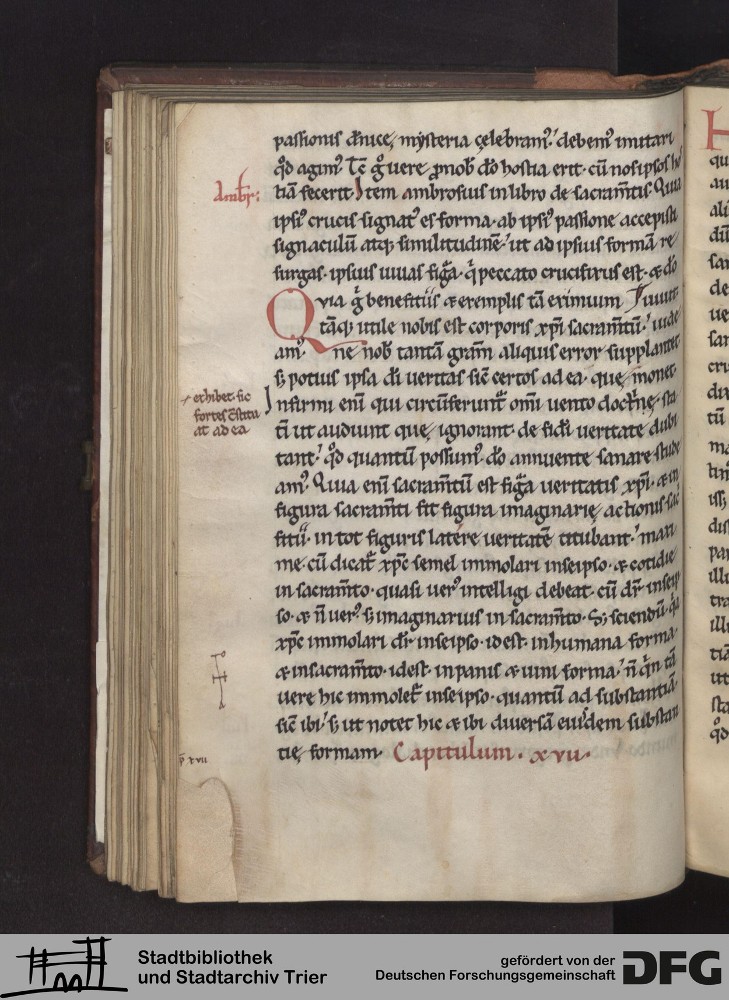 passionis dñicę mẏsteria çelebram᷒. debem᷒ imitari
qđ agim᷒. Tc̄ g̊ uere ꝓ nob̄ dō hostia erit. cū nos ipsos ho
Ambr̄:
tiā fecerit. Item ambrosius in libro de sacram̄tis. Quia
ipsi᷒ crucis signat᷒ es forma. ab ipsi᷒ passione accepisti
signaculū atq; similitudinē. ut ad ipsius formā re
surgas. ipsius uiuas figᷓa. qͥ peccato crucifixus est. & dō
Qvia g̊ benefitiis & exemplis tā eximium
tāq; utile nobis est corporis xp̄i sacram̄tū. uide
am᷒. ne nob̄ tantam grām aliquis error supplantet
s; potius ipsa di ueritas sic̄ certos ad ea. quę monet.
⸓ exhibet. sic
fortes c̄stitu
at ad ea
Infirmi eni qui circūferunt᷑ om̄i uento doctͥnę. sta
tī ut audiunt que ignorant. de fidi ueritate dubi
tant. qđ quantū possum᷒. dō annuente sanare stude
am᷒. Quia eni sacram̄tū est figᷓa ueritatis xp̄i. & in
figura sacram̄ti fit figura imaginarię actionis sac
fitii. in tot figuris latére ueritatē titubant. maxi
me. cū dicat᷑ xp̄c semel immolari in seipso. & cotidie
in sacram̄to. quasi uer᷒ intelligi debeat. cū dr̄ in seip
so. & n̄ uer᷒ s; imaginarius in sacram̄to. S; sciendū. qᷓa
xp̄c immolari dr̄ in seipso. id est. in humana forma.
& in sacram̄to. id est. in panis & uini forma. n̄ qͥn tā
uere hic immolet᷑ in seipso. quantū ad substantiā.
sic̄ ibi. s; ut notet hic & ibi diuersā eiusdem substan
tię formam. Capitulum. xvii.
p̄ xvii
Stadtbibliothek
und Stadtarchiv Trier
gefördert von der
Deutschen Forschungsgemeinschaft
DFG